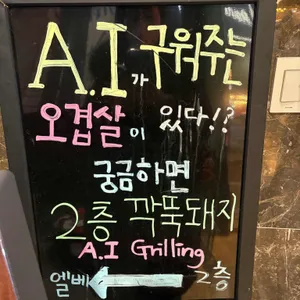 A.I가 구워주는
오겹살이 있다!?
궁금하면
2층 깍뚝돼지
A.I Grilling
엘베 ← 2층